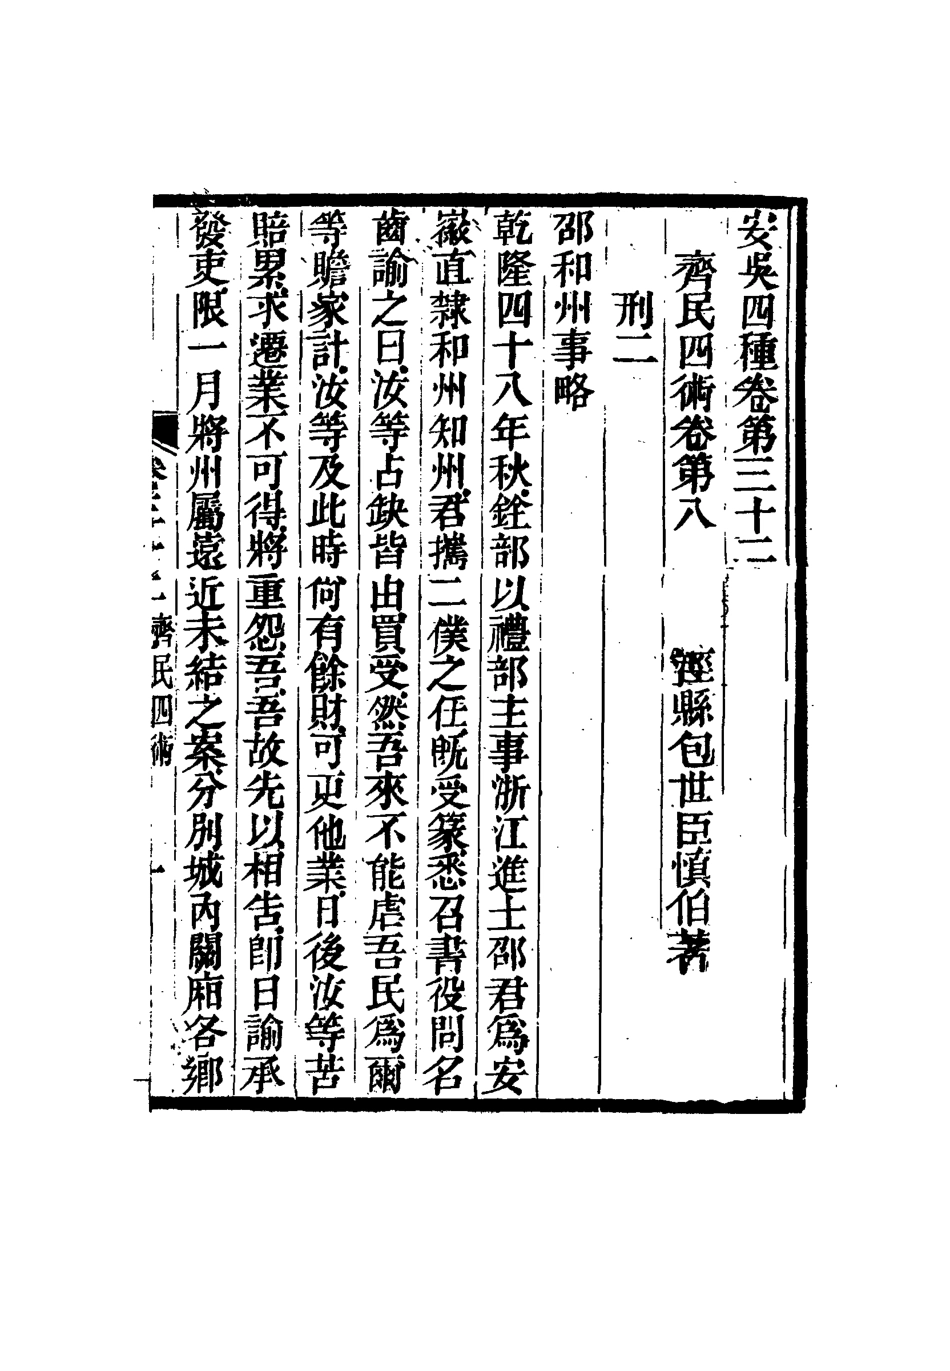 安吳四種卷第三十二
齊民四術卷第八 涇縣包世臣慎伯著
刑二
邵和州事略
乾隆四十八年秋銓部以禮部主事浙江進士邵君爲安
徽直隸和州知州君攜二僕之任旣受篆悉召書役問名
齒諭之曰汝等占缺皆由買受然吾來不能虐吾民爲爾
等贍家計汝等及此時尙有餘財可更他業日後汝等苦
賠累求遷業不可得將重怨吾吾故先以相告卽日諭承
發吏限一月將州屬遠近未結之案分別城內關廂各鄉
卷三十二 齊民四術 一